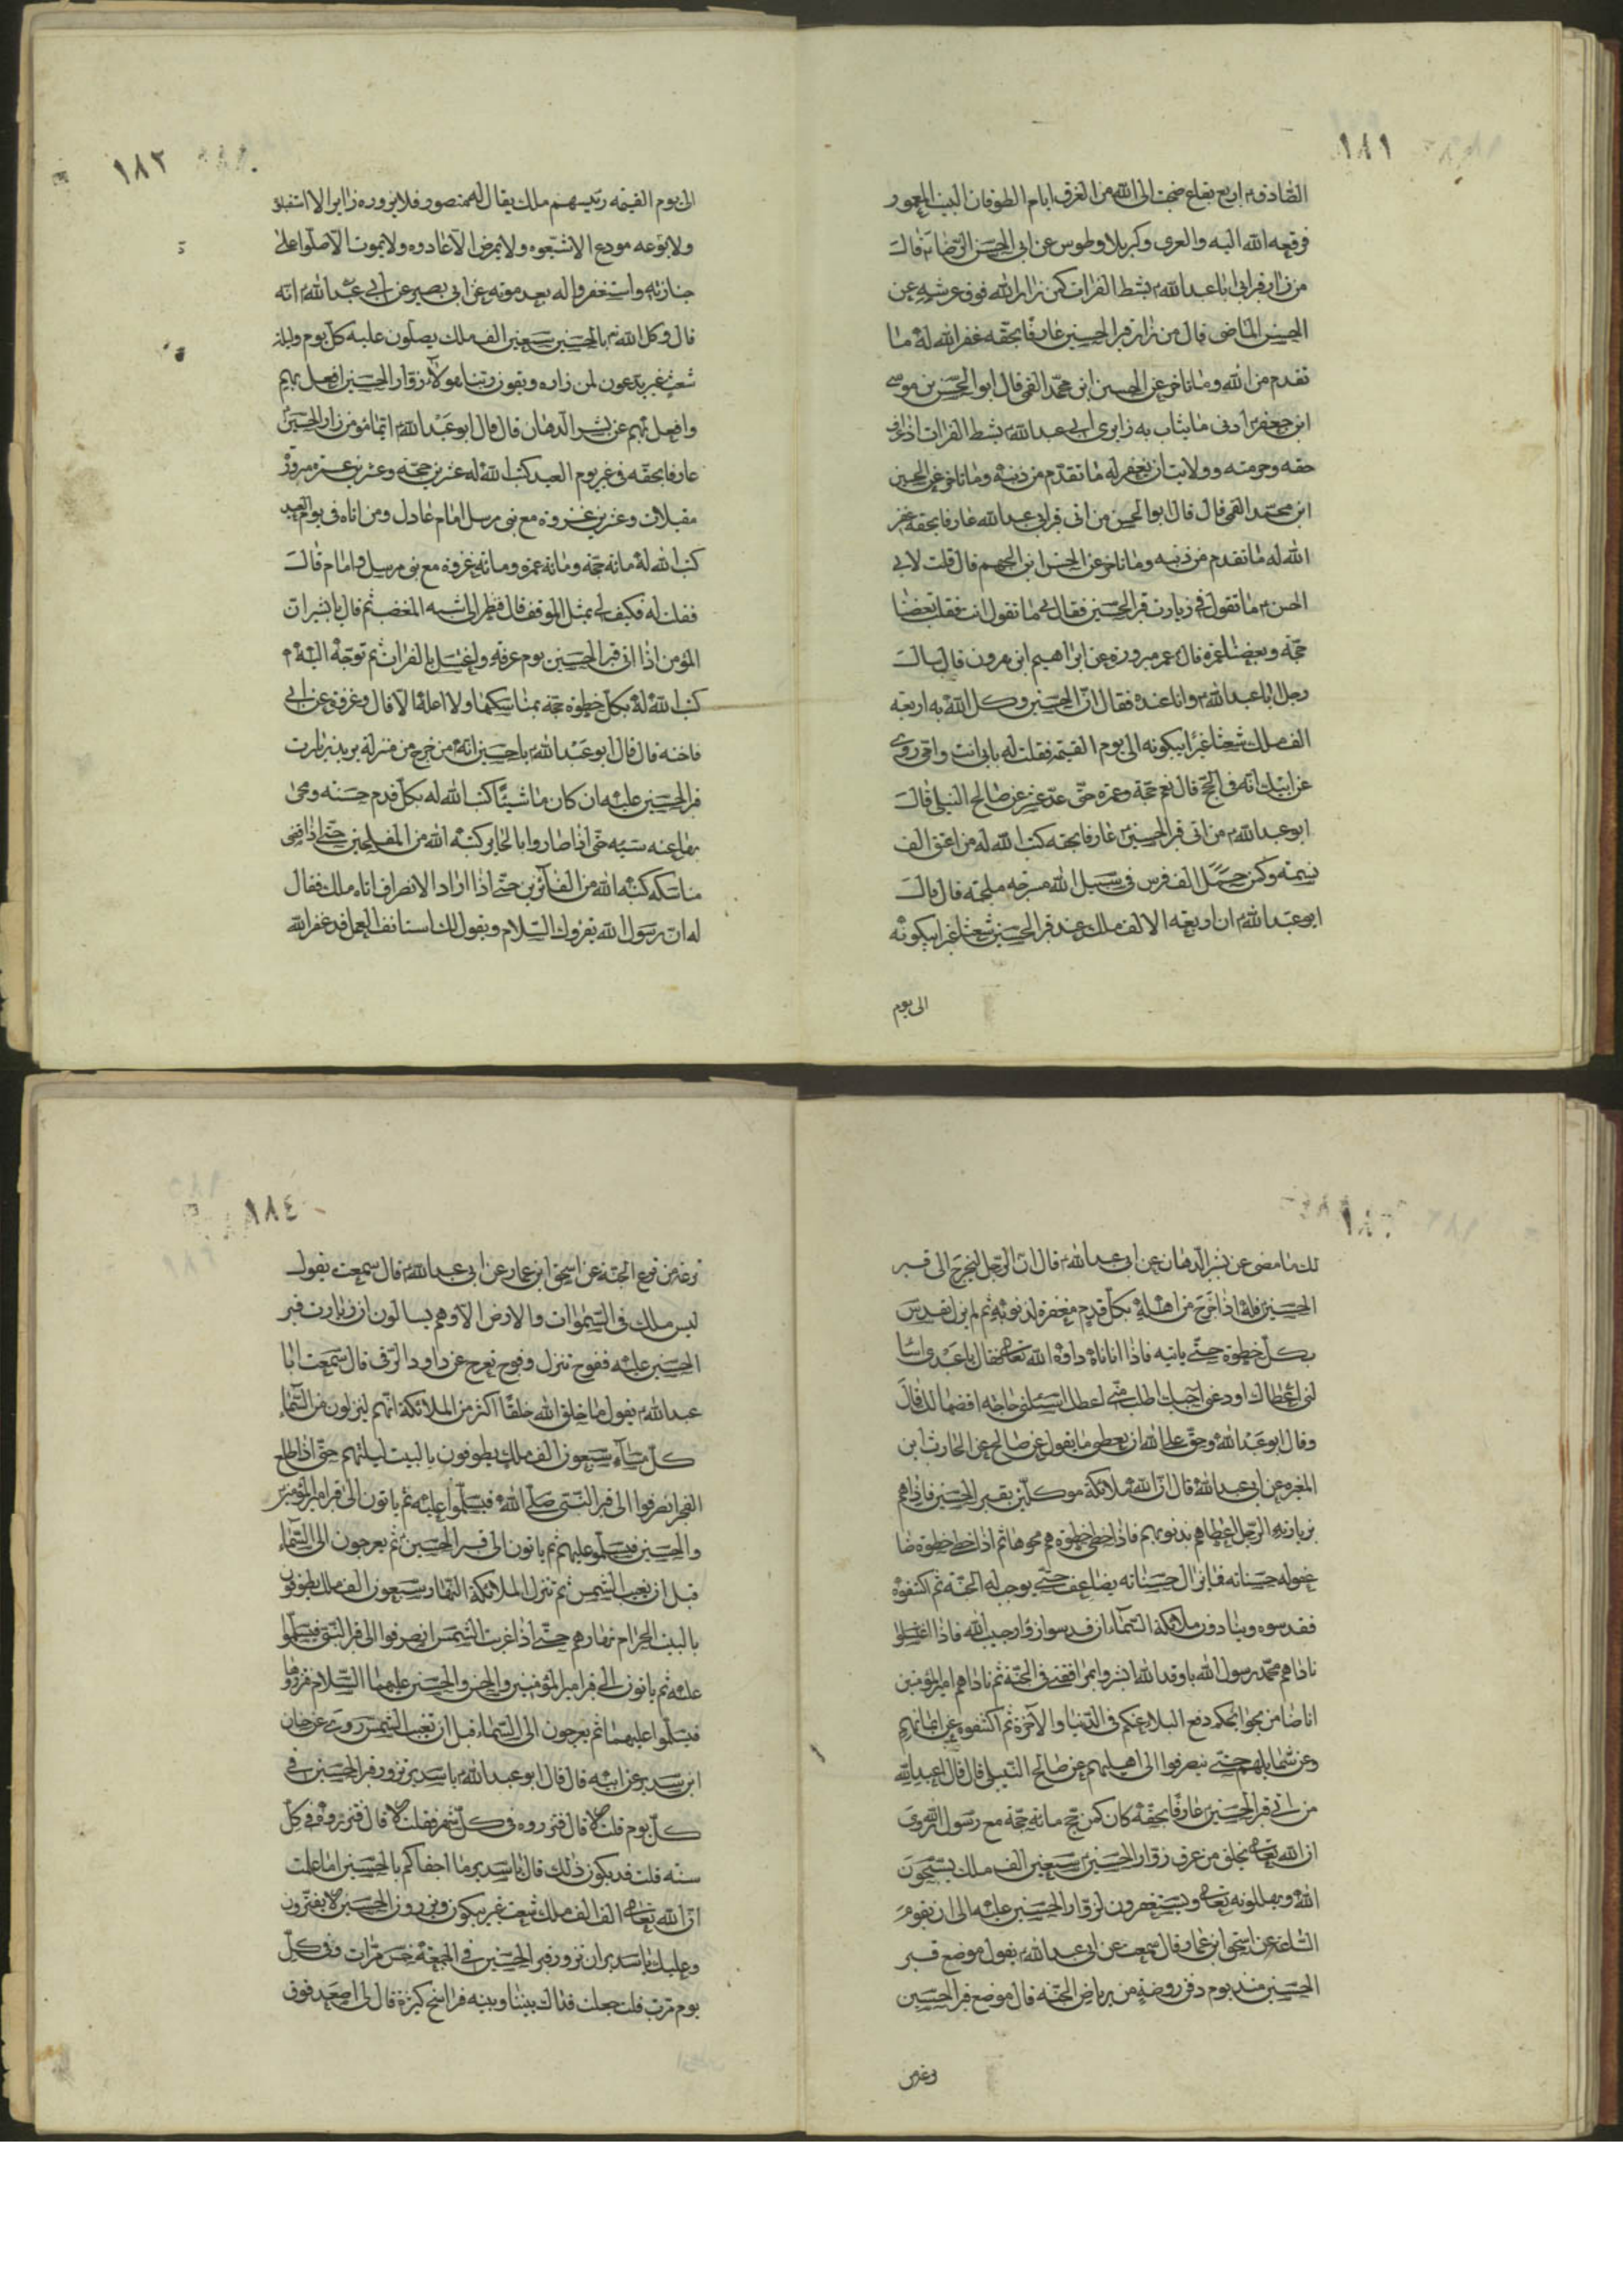 ١٨١
الصادق ع اربع بقاع ضجت الى الله من الغرق ايام الطوفان البيت المعمور
فرفعه الله اليه والغرى وكربلا وطوس عن ابى الحسن الرضا ع قال
من زار قبر ابى عبدالله ع بشط الفرات كمن زار الله فوق عرشه عن
الحسن الماضى قال من زار قبر الحسين عارفا بحقه غفر الله له ما
تقدم من الله وما تاخر عن الحسين ابن محمد القمى قال ابوالحسن بن موسى
ابن جعفر ع ادنى ما يثاب به زايرى ابى عبدالله ع بشط الفرات اذا عرف
حقه وحرمته وولايت ان يغفر له ما تقدم من ذنبه وما تاخر عن الحسين
ابن محمد القمى قال قال ابو الحسن من اتى قبر ابى عبدالله عارفا بحقه غفر
الله له ما تقدم من ذنبه وما تاخر عن الحسن ابن الجهم قال قلت لابى
الحسن ع ما تقول فى زيارت قبر الحسين فقال لى ما تقول انت فقلت بعضنا
حجة وبعضنا عمرة قال ع عمرة مبرورة عن ابراهيم ابن هرون قال سالت
رجل ابا عبدالله ع وانا عنده فقال ان الحسين وكل الله به اربعة
الف ملك شعثا غبرا يبكونه الى يوم القيمة فقلت له بابى انت وامى روى
عن ابيك انه فى الحج قال نعم حجة وعمرة حتى عد عشر عن صالح النيلى قال
ابو عبدالله ع من اتى قبر الحسين ع عارفا بحقه كتب الله له من اعتق الف
نسمة وكمن حمل الف فرس فى سبيل الله مسرجه ملجمة قال قال
ابو عبدالله ع ان اربعة الالف ملك عند قبر الحسين شعثا غبرا يبكونه
الى يوم
١٨٢
الى يوم القيمه رئيسهم ملك يقال له منصور فلا يزوره زاير الا استقبلو
ولا يودعه مودع الا شيعوه ولا يمرض الا عادوه ولا يموت الا صلوا على
جنازته واستغفروا له بعد موته وعن ابى بصير عن ابى عبدالله ع انه
قال وكل الله ع بالحسين سبعين الف ملك يصلون عليه كل يوم وليلة
شعث غبر يدعون لمن زاره ويقون ربنا هولاء زوار الحسين افعل بهم
وافعل بهم عن بشير الدهان قال قال ابو عبدالله ع ايما مؤمن زار الحسين
عارفا بحقه فى غير يوم العيد كتب الله له عشرين حجة وعشرين عمرة مبرورة
مقبلات وعشرين غزوة مع نبى مرسل امام عادل ومن اتاه فى يوم العيد
كتب الله له مائة حجة ومائة عمرة ومائة غزوة مع نبى مرسل وامام قال
فقلت له فكيف لى بمثل الموقف قال فنظر الى شبه المغضب ثم قال يا بشير ان
المؤمن اذا اتى قبر الحسين يوم عرفة واغتسل بالفرات ثم توجه اليه ع
كتب الله له بكل خطوة حجة بمناسكها ولا اعلمه الا قال وغزوة عن ابى
فاخته قال قال ابو عبدالله ع يا حسين انه من خرج من منزله يريد زيارت
قبر الحسين عليه ان كان ماشيا كتب الله له بكل قدم حسنه ومحى
بها عنه سيئه حتى اذا صار وا بالحاير كتبه الله من المفلحين حتى اذا قضى
مناسكه كتبه الله من الفائزين حتى اذا اراد الانصراف اتاه ملك فقال
له ان رسول الله يقرؤك السلام ويقول لك استانف العمل قد غفر الله
لك ما مضى عن بشير الدهان عن ابى عبدالله ع قال ان الرجل ليخرج الى قبر
الحسين فله اذا خرج من اهله بكل قدم مغفرة لذنوبه ثم لم يزل يقدس
بكل خطوة حتى ياتيه فاذا اتاه ناداه الله تعالى فقال يا عبدى اسا
لنى اعطاك ادعنى اجبك اطلب منى اعطك اسئلنى حاجة اقضها لك قال
وقال ابو عبدالله وحق على الله ان يعطى ما يقول عن صالح عن الحارث ابن
المغيره عن ابى عبدالله قال ان لله ملائكة موكلين بقبر الحسين فاذا هم
بزيارته الرجل اعطاهم بذنوبهم فاذا خطى خطوة هم محوها ثم اذا خطى خطوة ضا
عفو له حسناته فما يزال حسناته يضاعف حتى يوجب له الجنة ثم اكتنفوه
فقدسوه وينادون ملائكة السماء ان قدسوا زوار حبيب الله فاذا اغتسلوا
ناداهم محمد رسول الله يا وفد الله ابشروا بمرافقتى فى الجنة ثم ناداهم امير المؤمنين
انا ضامن بحوايجكم دفع البلاء عنكم فى الدنيا والاخرة ثم اكتنفوه عن ايمانهم
وعن شمايلهم حتى ينصرفوا الى اهليهم عن صالح النيلى قال قال ابو عبدالله
من اتى قبر الحسين ع عارفا بحقه كان كمن حج مائة حجة مع رسول الله روى
ان الله تعالى يخلق من عرق زوار الحسين ع سبعين الف ملك يسبحون
الله ويهللونه تعالى ويستغفرون لزوار الحسين عليه الى ان يقوم
الساعة عن اسحق ابن عمار قال سمعت عن ابى عبدالله ع يقول موضع قبر
الحسين منذ يوم دفن روضة من رياض الجنة قال موضع قبر الحسين
١٨٤
ترعة من ترع الجنة عن اسحق ابن عمار عن ابى عبدالله ع قال سمعت يقول
ليس ملك فى السموات والارض الا وهم يسالون ان زيارت قبر
الحسين عليه ففوج تنزل وفوج تعرج عن داود الرقى قال سمعت ابا
عبدالله ع يقول ما خلق الله خلقا اكثر من الملائكة انهم لينزلون من السماء
كل مساء سبعون الف ملك يطوفون بالبيت ليلتهم حتى اذا طلع
الفجر انصرفوا الى قبر النبى صلى الله فيسلموا عليه ثم ياتون الى قبر امير المؤمنين
والحسين فيسلمو عليهم ثم ياتون الى قبر الحسين ثم يعرجون الى السماء
قبل ان تغيب الشمس ثم تنزل الملائكة النهار سبعون الف ملك يطوفون
بالبيت الحرام نهارهم حتى اذا غربت الشمس انصرفوا الى قبر النبى فيسلموا
عليه ثم ياتون الى قبر امير المؤمنين والحسن والحسين عليهما السلام
فيسلموا عليهما ثم يعرجون الى السماء قبل ان تغيب الشمس روت عن حنان
ابن سدير عن ابيه قال قال ابو عبدالله ع يا سدير تزور قبر الحسين فى
كل يوم قلت لا قال فتزروه فى كل شهر فقلت لا قال فتزروه فى كل
سنه قلت قد يكون ذلك قال يا سدير ما اجفاكم بالحسين اما علمت
ان لله تعالى الف الف ملك شعث غبر يبكون ويزورون الحسين لا يفترون
وعليك يا سدير ان تزور قبر الحسين فى الجمعة خمس مرات وفى كل
يوم مرت قلت جعلت فداك بيننا وبينه فراسخ كثيرة قال لى اصعد فوق